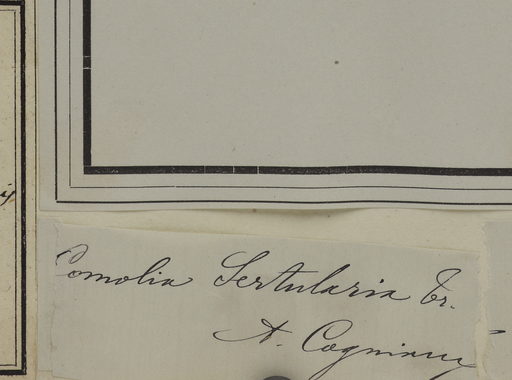 Comolia Sertularia Tr.
A. Cogniaux